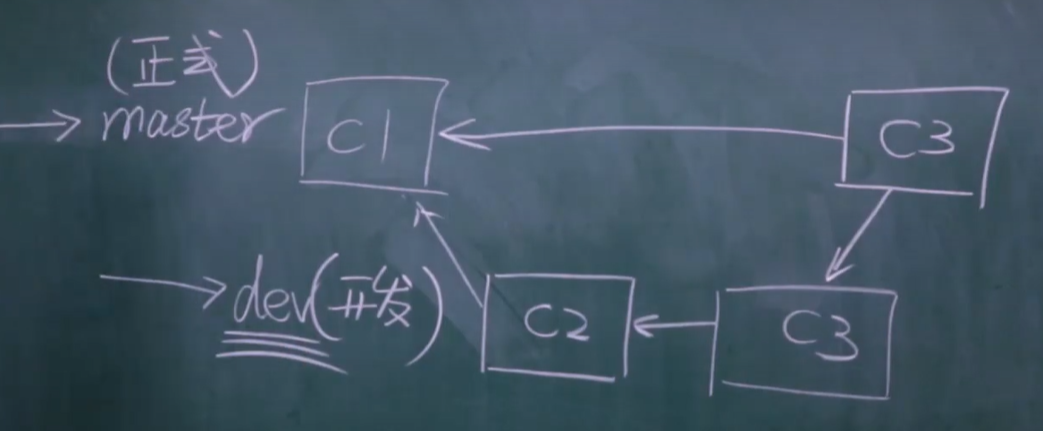 (正式)
master C1 C3
dev(开发) C2 C3